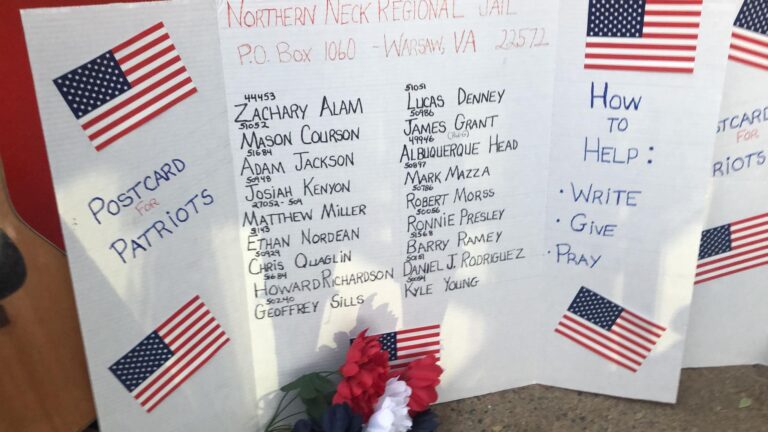 NORTHERN NECK REGIONAL JAIL
P.O. BOX 1060 - WARSAW, VA 22572
POSTCARD
FOR
PATRIOTS
44453
ZACHARY ALAM
51052
MASON COURSON
51684
ADAM JACKSON
50948
JOSIAH KENYON
27052-504
MATTHEW MILLER
5143
ETHAN NORDEAN
50929
CHRIS QUAGLIN
51684
HOWARD RICHARDSON
50240
GEOFFREY SILLS
51051
LUCAS DENNEY
50986
JAMES GRANT
49946
ALBUQUERQUE HEAD
50897
MARK MAZZA
50786
ROBERT MORSS
50056
RONNIE PRESLEY
51568
BARRY RAMEY
50151
DANIEL J. RODRIGUEZ
50054
KYLE YOUNG
HOW
TO
HELP:
· WRITE
· GIVE
· PRAY
FOR